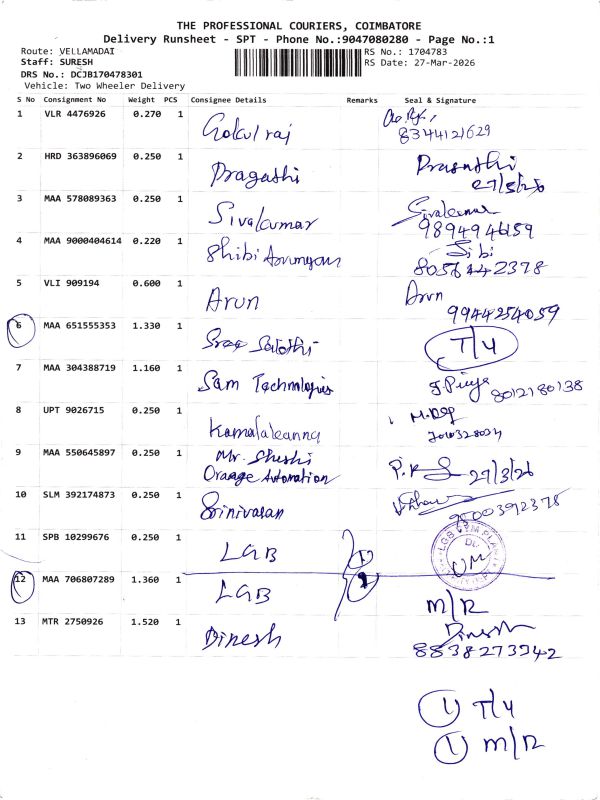 THE PROFESSIONAL COURIERS, COIMBATORE
Delivery Runsheet - SPT - Phone No.:9047080280 - Page No.:1
Route: VELLAMADAI RS No.: 1704783
Staff: SURESH RS Date: 27-Mar-2026
DRS No.: DCJB170478301
Vehicle: Two Wheeler Delivery
S No Consignment No Weight PCS Consignee Details Remarks Seal & Signature
1 VLR 4476926 0.270 1 Gokul raj
8344121629
2 HRD 363896069 0.250 1 Pragathi
27/3/26
3 MAA 578089363 0.250 1 Sivakumar Sivakumar
9894946159
4 MAA 9000404614 0.220 1 Shibi Sibi
8056442378
5 VLI 909194 0.600 1 Arun Arun
9944254059
6 MAA 651555353 1.330 1 T/4
7 MAA 304388719 1.160 1 Sam Technologies 8012180138
8 UPT 9026715 0.250 1
9 MAA 550645897 0.250 1 Mr. Sheshi
Orange Automation 27/3/26
10 SLM 392174873 0.250 1 Srinivasan
11 SPB 10299676 0.250 1 LGB 1
12 MAA 706807289 1.360 1 LGB 1
M/R
13 MTR 2750926 1.520 1 Dinesh Dinesh
8838273942
1 T/4
1 M/R